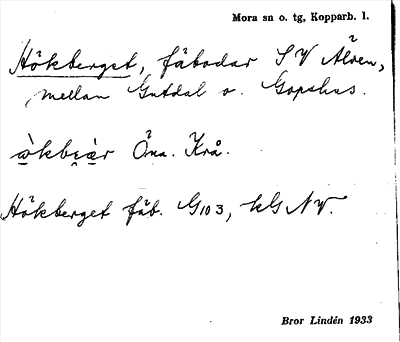 Mora sn o. tg, Kopparb. l.
Hökberget, fäbodar S V Älven,
mellan Gutdal o. Gopshus.
ὼkbεὰr Öna. Krå.
Hökberget fäb. G103, kG NV.
Bror Lindén 1933